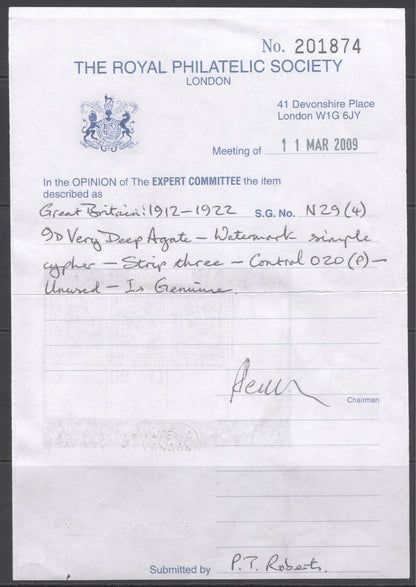 No. 201874
THE ROYAL PHILATELIC SOCIETY
LONDON
41 Devonshire Place
London W1G 6JY
Meeting of 11 MAR 2009
In the OPINION of The EXPERT COMMITTEE the item
described as
Great Britain: 1912-1922 S.G. No. N29(4)
9D Very Deep Agate - Watermark simple
cypher - Strip three - Control O20 (P) -
Unused - Is Genuine.
Chairman
Submitted by P.T. Roberts.